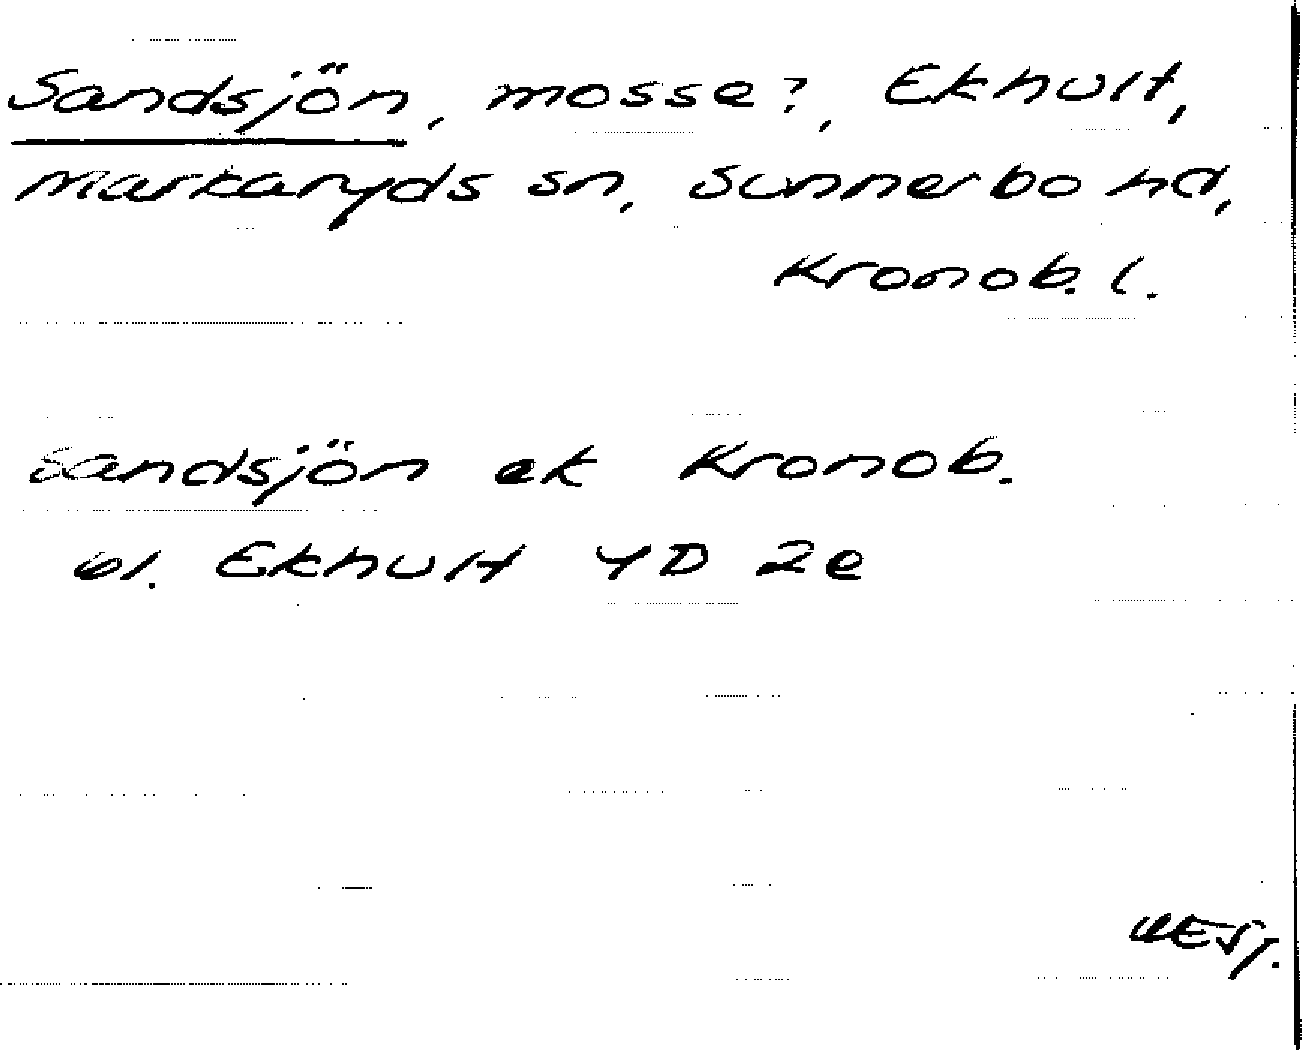 Sandsjön, mosse?, Ekhult,
Markaryds sn, Sunnerbo hd,
Kronob. l.
Sandsjön ek Kronob.
bl. Ekhult 4D 2e